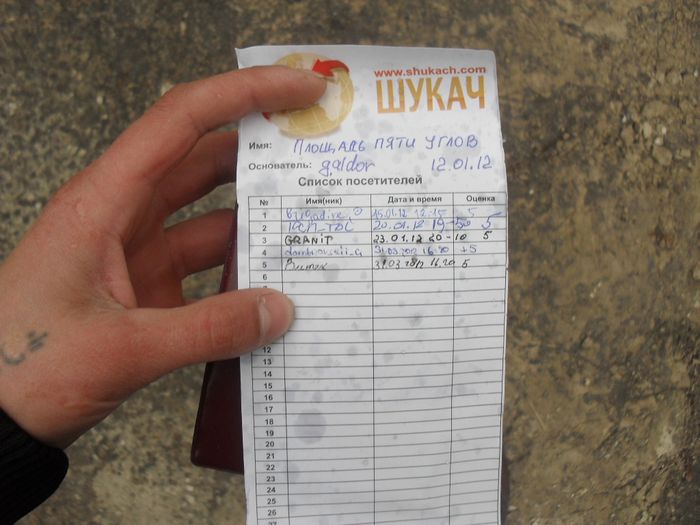 www.shukach.com
ШУКАЧ
Имя: Площадь пяти углов
Основатель: galdor 12.01.12
Список посетителей
№ Имя(ник) Дата и время Оценка
1 15.01.12 12-15 5
2 20.01.12 19-50 5
3 GRANIT 23.01.12 20-10 5
4 31.03.2012 16.20 +5
5 Витек 31.03.2012 16.20 5
6
12
13
14
15
16
17
18
19
20
21
22
23
24
25
26
27